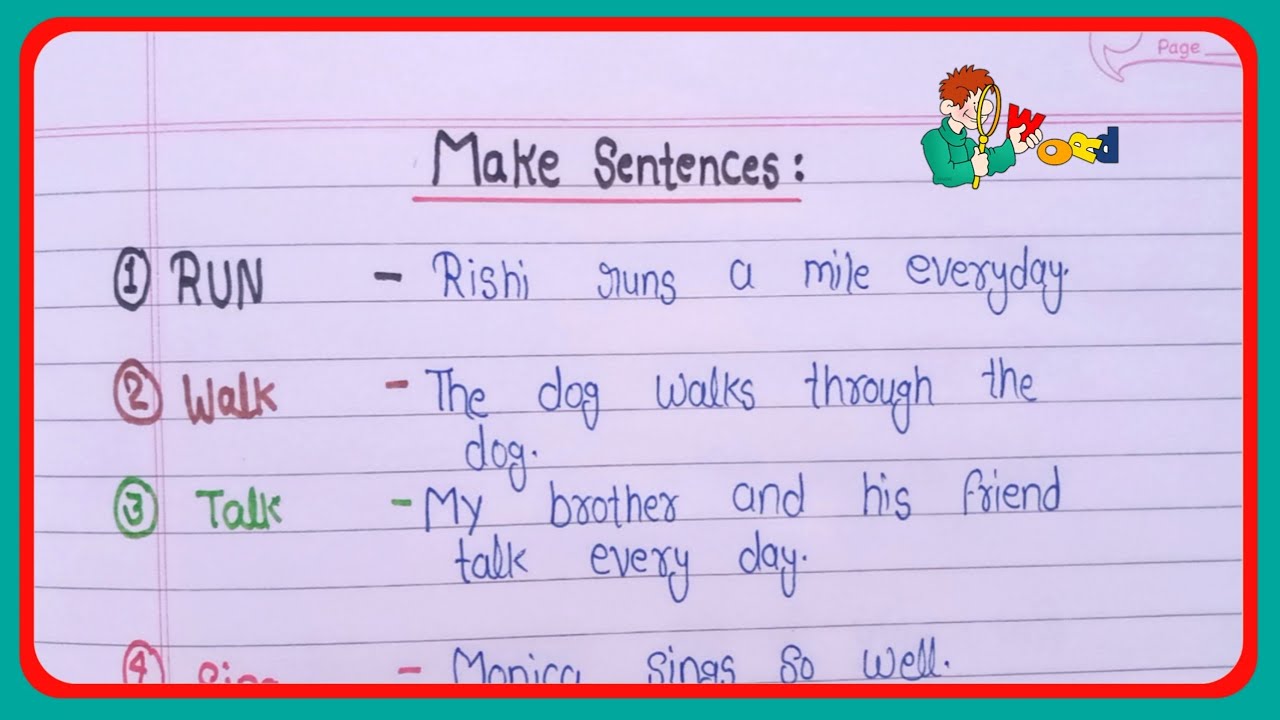 Page
WORD
Make Sentences:
① RUN - Rishi runs a mile everyday.
② Walk - The dog walks through the
dog.
③ Talk - My brother and his friend
talk every day.
④ Sing - Monica sings so well.